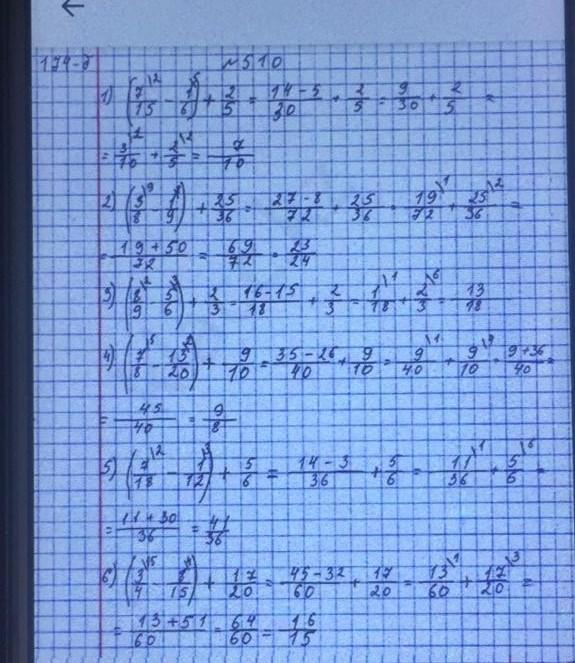 174-д №510
1) (7/15\2 - 1/6\5) + 2/5 = (14-5)/30 + 2/5 = 9/30 + 2/5 =
= 3/10\1 + 2/5\2 = 7/10
2) (3/8\9 - 1/9\8) + 25/36 = (27-8)/72 + 25/36 = 19/72\1 + 25/36\2 =
= (19+50)/72 = 69/72 = 23/24
3) (8/9\2 - 5/6\3) + 2/3 = (16-15)/18 + 2/3 = 1/18\1 + 2/3\6 = 13/18
4) (7/8\5 - 13/20\2) + 9/10 = (35-26)/40 + 9/10 = 9/40\1 + 9/10\4 = (9+36)/40 =
= 45/40 = 9/8
5) (7/18\2 - 1/12\3) + 5/6 = (14-3)/36 + 5/6 = 11/36\1 + 5/6\6 =
= (11+30)/36 = 41/36
6) (3/4\15 - 8/15\4) + 17/20 = (45-32)/60 + 17/20 = 13/60\1 + 17/20\3 =
= (13+51)/60 = 64/60 = 16/15